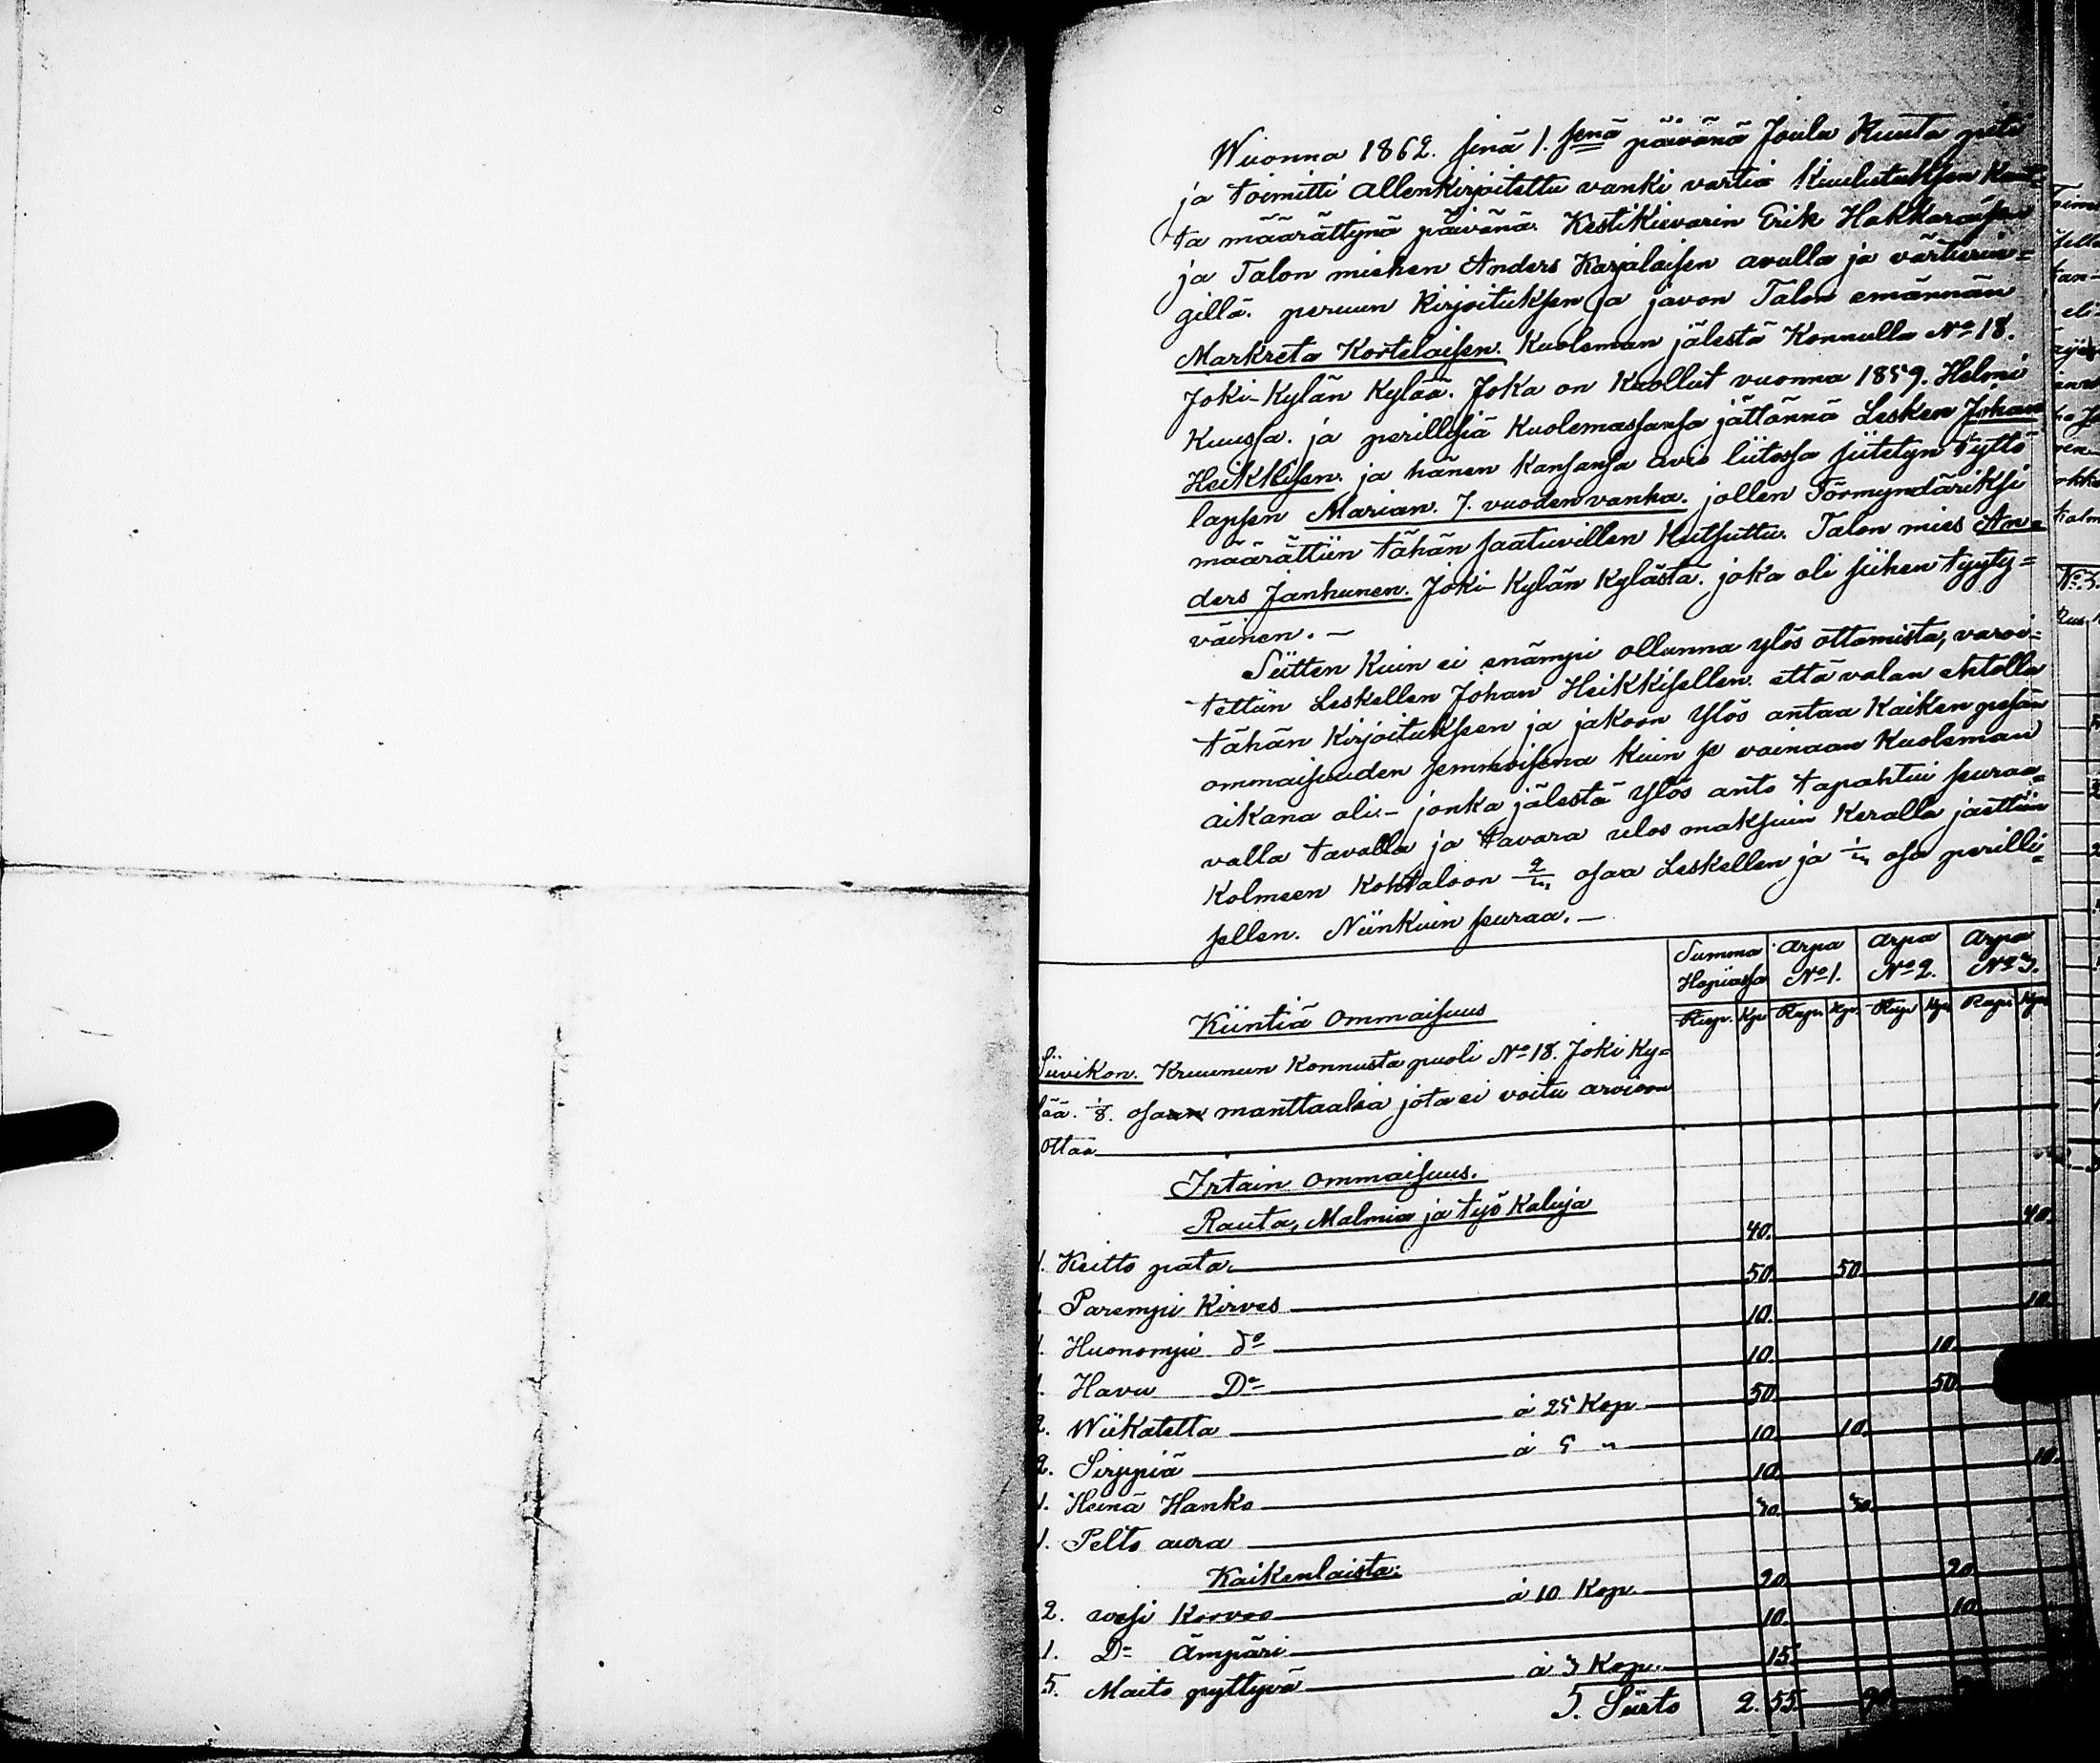 Wuonna 1862. sinä 1. senä päivänä Joulu Kuuta piti
ja toimitti allenkirjoitettu vanki vartia Kuulutuksen Kaut=
ta määrättynä päivänä. Kestikievarin Erik Hakkaraisen
ja Talon miehen Anders Karjalaisen avulla ja värtierin=
gillä. peruun Kirjoituksen ja javon Talon emännän
Markreta Kortelaisen. Kuoleman jälestä Konnulla No 18.
Joki-Kylän Kylää. Joka on Kuollut vuonna 1859. Helmi
Kuussa. ja perillisiä Kuolemassansa jättännä Lesken Johan
Heikkisen. ja hänen Kansansa avio liitossa siitetyn tyttö
lapsen Marian. 7. vuoden vanha. jollen Förmyndäriksi
määrättiin tähän saatuvillen Kutsuttu. Talon mies An=
ders Janhunen. Joki-Kylän Kylästä. joka oli siihen tyyty=
väinen. —
Siitten Kuin ei enämpi ollunna ylös ottamista, varoi=
tettiin Leskellen Johan Heikkisellen. että valan ehtolla
tähän Kirjoitukseen ja jakoon ylös antaa Kaiken pesän
ommaisuuden semmoisena Kuin se vainaan Kuoleman
aikana oli. – jonka jälestä ylös anto tapahtui seuraa=
valla tavalla ja tavara ulos maksuin Keralla jaettiin
Kolmeen Kohtaloon 2/3 osaa Leskellen ja 1/3 osa perilli=
sellen. Niinkuin seuraa. —
Summa Hopiassa Arpa No 1. Arpa No 2. Arpa No 3.
Rup. Kp. Rup. Kp. Rup. Kp. Rup. Kp.
Kiintiä Ommaisuus
Siivikon. Kruunun Konnusta puoli No 18. Joki Ky=
lää. 1/8. osaan manttaalia jota ei voitu arvioon
ottaa
Irtain Ommaisuus.
Rauta, Malmia ja työ Kaluja
1. Keitto pata. 40. 40.
1. Parempi Kirves 50. 50
1. Huonompi do 10. 10.
1. Havu Do 10. 10
2. Wiikatetta à 25 Kop 50 50
2. Sirppiä à 5 " 10 10.
1. Heinä Hanko 10 10.
1. Pelto aura 30. 30.
Kaikenlaista:
2. vesi Korvoo à 10 Kop. 20 20
1. Do Ämpäri 10. 10.
5. Maito pyttyvä à 3 Kop. 15
5. Siirto 2. 55.